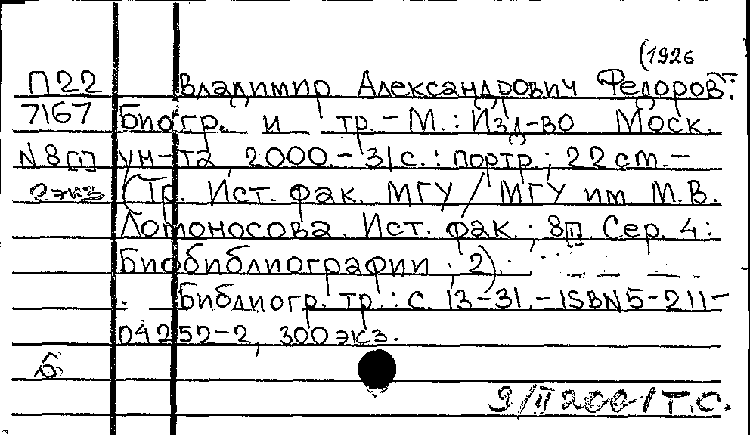 (1926
П22 Владимир Александрович Федоров:
7167 Биогр. и тр. – М.: Изд-во Моск.
N8 ун-та, 2000. – 31с.: портр.; 22 cm. –
(Тр. Ист. фак. МГУ / МГУ им. М.В.
Ломоносова. Ист. фак.; 8 Сер. 4:
Биобиблиографии; 2)
Библиогр. тр.: с. 13-31. – ISBN 5-211-
04252-2, 300 экз.
Б
9/II 2001 Т.С.